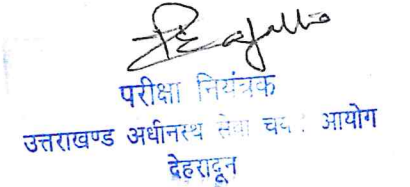 परीक्षा नियंत्रक
उत्तराखण्ड अधीनस्थ सेवा आयोग
देहरादून